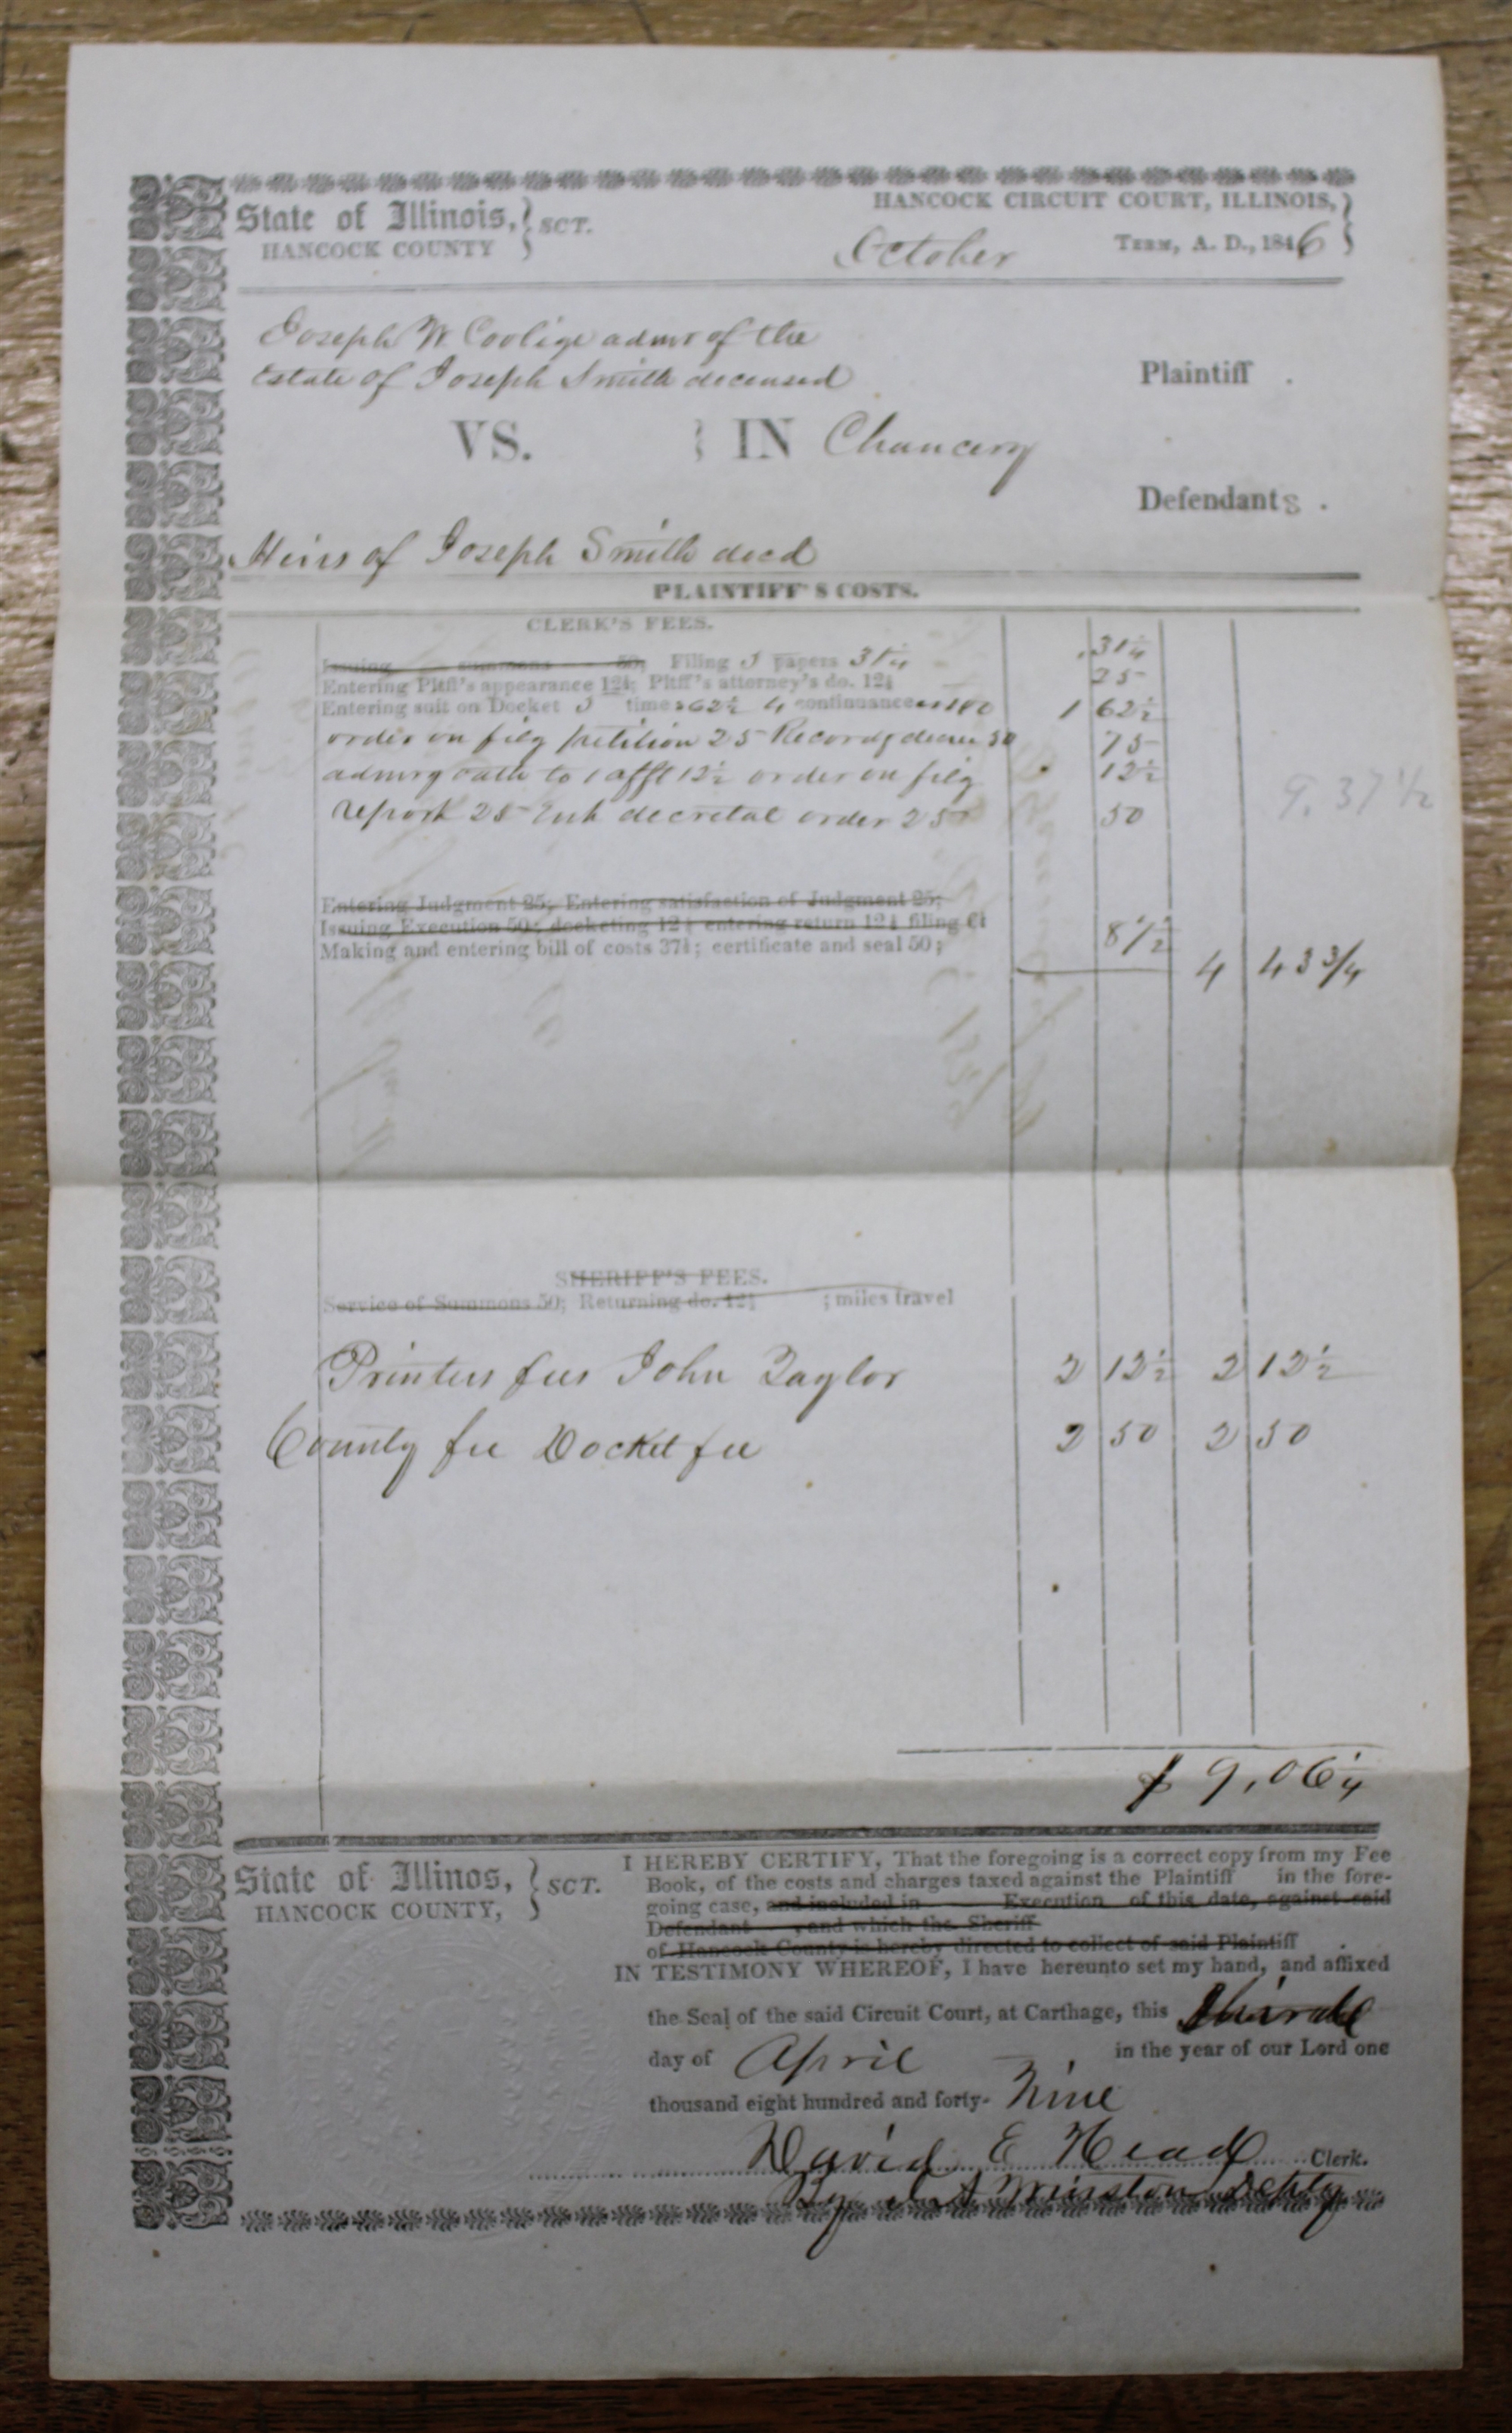 State of Illinois, } SCT.
HANCOCK COUNTY
HANCOCK CIRCUIT COURT, ILLINOIS, }
October TERM, A. D., 1846
Joseph W Coolige admr of the
Estate of Joseph Smith deceased
Plaintiff .
VS. } IN Chancery
Defendants .
Heirs of Joseph Smith decd
PLAINTIFF'S COSTS.
CLERK'S FEES.
Issuing summons 50; Filing 5 papers 31¼ .31¼
Entering Pltff's appearance 12½; Pltff's attorney's do. 12½ 25
Entering suit on Docket 5 times 62½ 4 continuances 100 1 62½
order on filg petition 25 Recordg decree 50 75
admrg oath to 1 afft 12½ order on filg 12½
report 25 Entr decretal order 25 50
9.37½
Entering Judgment 25; Entering satisfaction of Judgment 25;
Issuing Execution 50; docketing 12½ entering return 12½ filing 6¼
Making and entering bill of costs 37½; certificate and seal 50; 87½
4 43¾
SHERIFF'S FEES.
Service of Summons 50; Returning do. 12½ ; miles travel
Printers fees John Taylor 2 12½ 2 12½
County fee Docket fee 2 50 2 50
$ 9,06¼
State of Illinos, } SCT.
HANCOCK COUNTY,
I HEREBY CERTIFY, That the foregoing is a correct copy from my Fee
Book, of the costs and charges taxed against the Plaintiff in the fore-
going case, and included in Execution of this date, against said
Defendant , and which the Sheriff
of Hancock County is hereby directed to collect of said Plaintiff .
IN TESTIMONY WHEREOF, I have hereunto set my hand, and affixed
the Seal of the said Circuit Court, at Carthage, this
day of April in the year of our Lord one
thousand eight hundred and forty- Nine
David E Head Clerk.
By Winston Depty